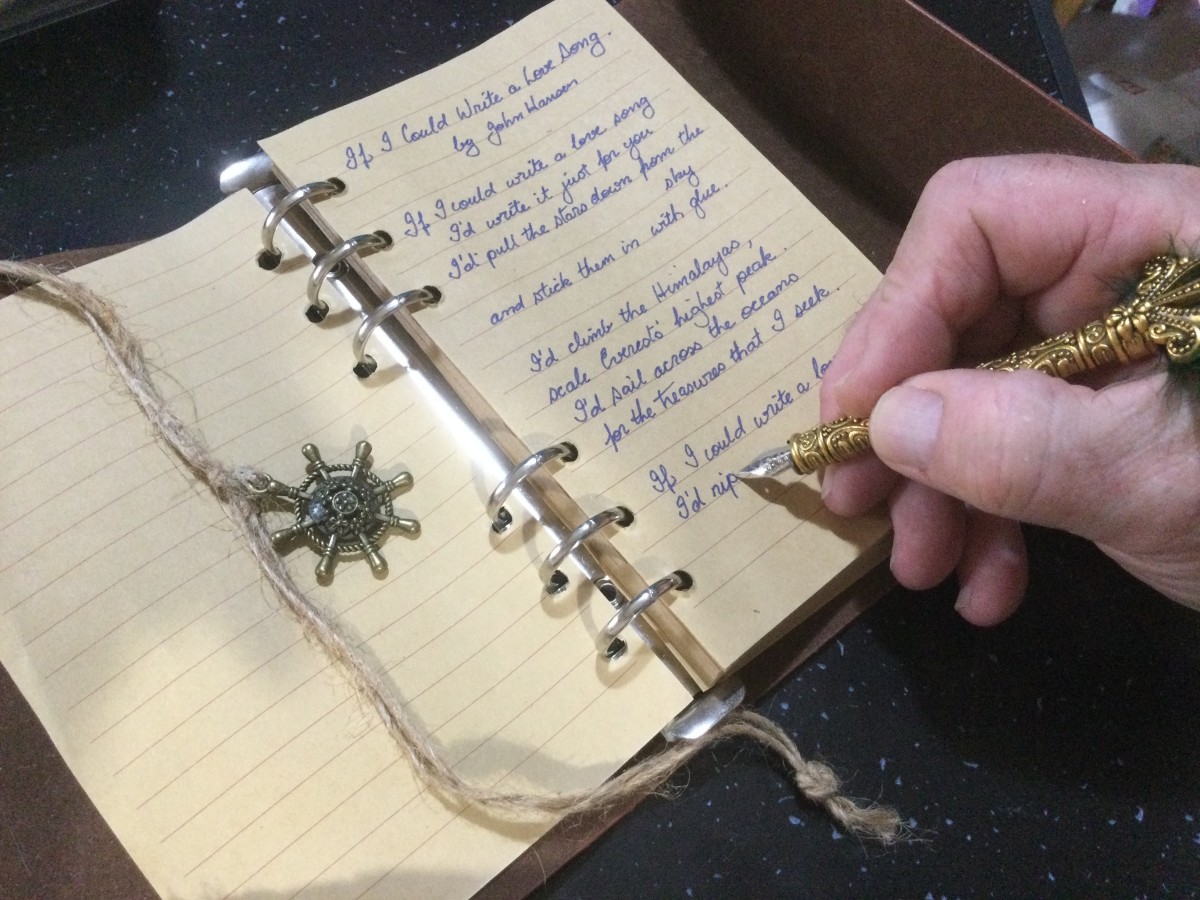 If I Could Write a Love Song.
by John Hansen
If I could write a love song
I'd write it just for you
I'd pull the stars down from the
sky
and stick them in with glue.
I'd climb the Himalayas,
scale Everests' highest peak.
I'd sail across the oceans
for the treasures that I seek.
If I could write a
I'd rip